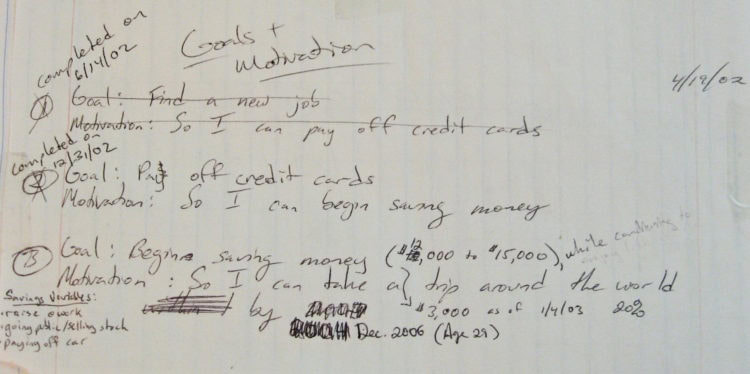 Goals +
Motivation
4/19/02
completed on
6/14/02
1 Goal: Find a new job
Motivation: So I can pay off credit cards
completed on
12/31/02
2 Goal: Pay off credit cards
Motivation: So I can begin saving money
3 Goal: Begin saving money ($12,000 to $15,000), while continuing to
Motivation: So I can take a trip around the world
by $3,000 as of 1/4/03
Dec. 2006 (Age 29)
Savings Variables:
• raise @ work
• going public/selling stock
• paying off car